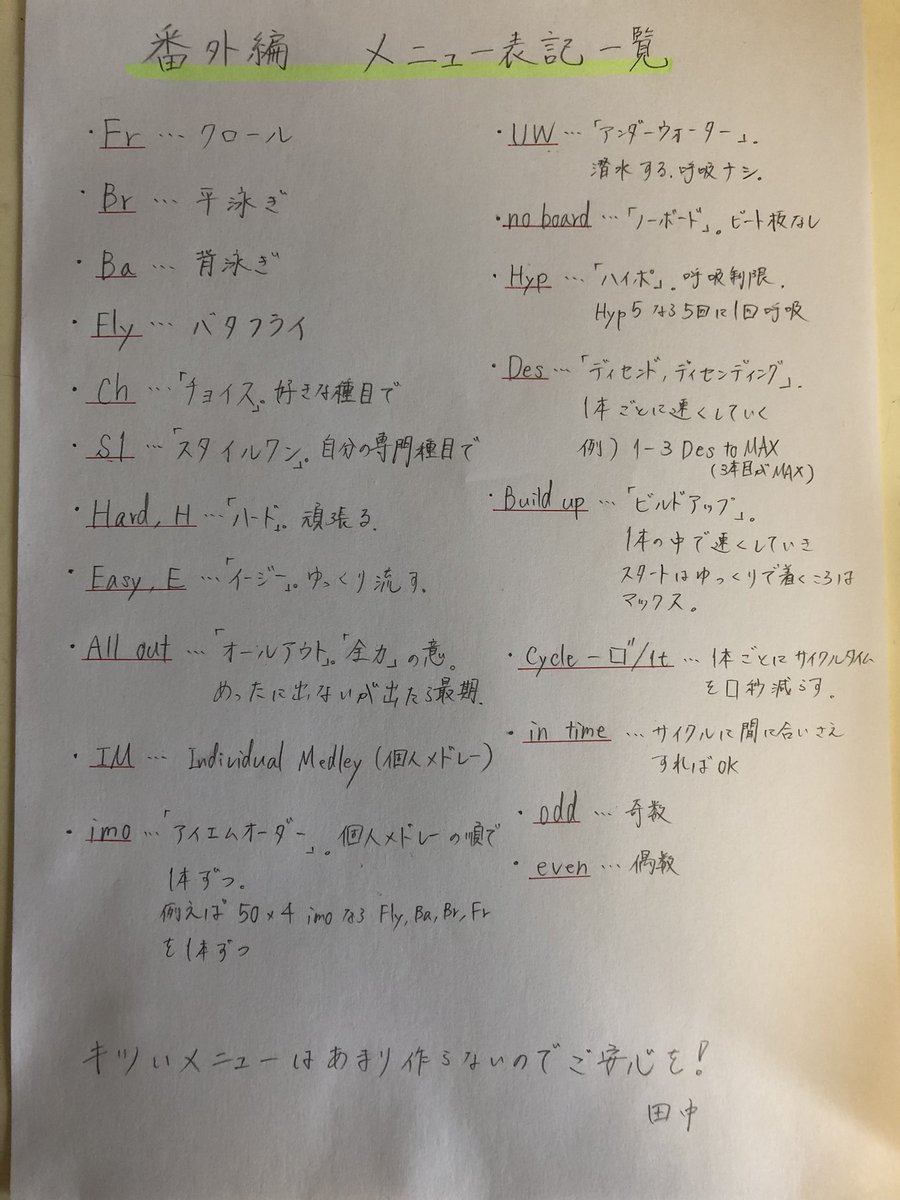 番外編 メニュー表記一覧
・Fr … クロール
・Br … 平泳ぎ
・Ba … 背泳ぎ
・Fly … バタフライ
・Ch …「チョイス」。好きな種目で
・S1 …「スタイルワン」。自分の専門種目で
・Hard, H …「ハード」。頑張る.
・Easy, E …「イージー」。ゆっくり流す.
・All out …「オールアウト」。「全力」の意。
めったに出ないが出たら最期.
・IM … Individual Medley (個人メドレー)
・imo …「アイエムオーダー」。個人メドレーの順で
1本ずつ。
例えば 50×4 imoなら Fly, Ba, Br, Fr
を1本ずつ
・UW …「アンダーウォーター」。
潜水する.呼吸ナシ。
・no board …「ノーボード」。ビート板なし
・Hyp …「ハイポ」。呼吸制限.
Hyp5なら5回に1回呼吸
・Des …「ディセンド, ディセンディング」.
1本ごとに速くしていく
例) 1-3 Des to MAX
(3本目がMAX)
・Build up …「ビルドアップ」。
1本の中で速くしていき
スタートはゆっくりで着くころは
マックス。
・Cycle-□"/1t … 1本ごとにサイクルタイム
を□秒減らす.
・in time … サイクルに間に合いさえ
すればOK
・odd … 奇数
・even … 偶数
キツいメニューはあまり作らないのでご安心を!
田中